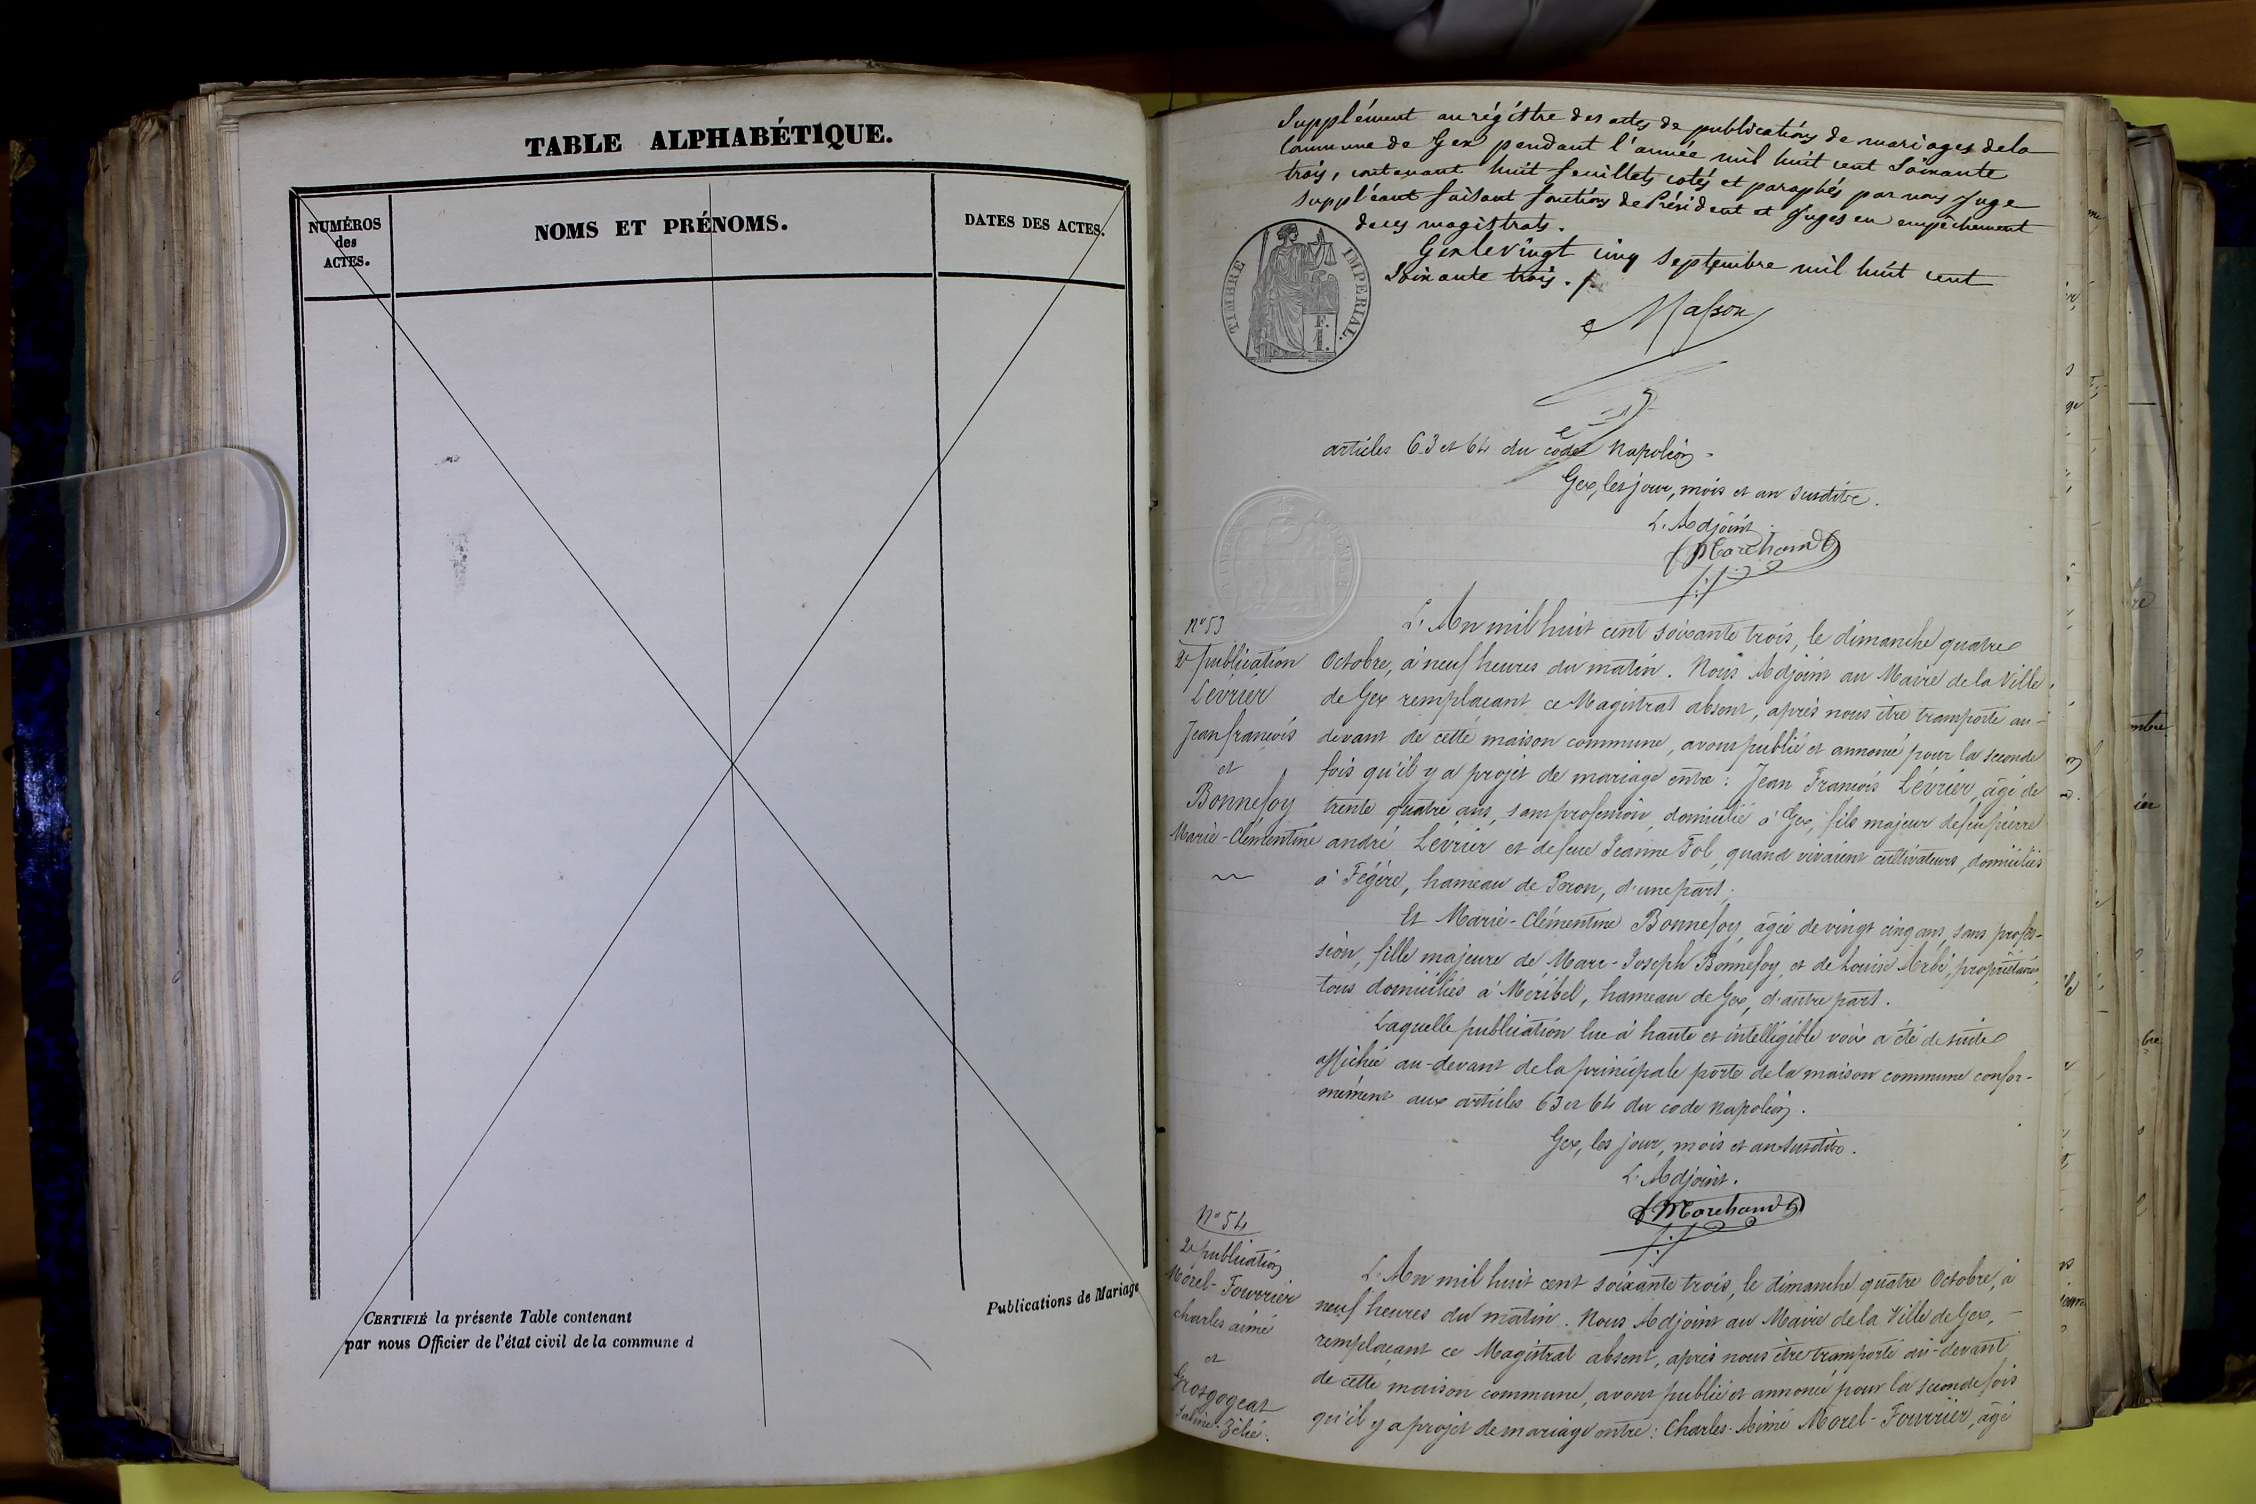 TABLE ALPHABÉTIQUE.
NUMÉROS
des
ACTES.
NOMS ET PRÉNOMS.
DATES DES ACTES.
CERTIFIÉ la présente Table contenant
par nous Officier de l'état civil de la commune d
Publications de Mariage
Supplément au régistre des actes de publications de mariages de la
Commune de Gex pendant l'année mil huit cent Soixante
trois, contenant huit feuillets cotés et paraphés par nous Juge
Suppléant faisant fonctions de Président et Juges en empêchement
de ces magistrats.
Gex le vingt cinq Septembre mil huit cent
Soixante trois.
TIMBRE IMPÉRIAL.
F.
1.
Masson
articles 63 et 64 du code Napoléon.
Gex, les jour, mois et an susdits.
L'Adjoint.
Marchand
N° 53
2e publication
Lévrier
Jean françois
et
Bonnefoy
Marie-Clémentine
L'An mil huit cent soixante trois, le dimanche quatre
Octobre, à neuf heures du matin. Nous Adjoint au Maire de la Ville
de Gex remplaçant ce Magistrat absent, après nous être transporté au-
devant de cette maison commune, avons publié et annoncé pour la seconde
fois qu'il y a projet de mariage entre : Jean François Lévrier, âgé de
trente quatre ans, sans profession, domicilié à Gex, fils majeur de feu pierre
andré Lévrier et de feue Jeanne Fol, quand vivaient cultivateurs, domiciliés
à Fégère, hameau de Péron, d'une part.
Et Marie-Clémentine Bonnefoy, âgée de vingt cinq ans, sans profes-
sion, fille majeure de Marc-Joseph Bonnefoy, et de Louise propriétaires,
tous domiciliés à Méribel, hameau de Gex, d'autre part.
Laquelle publication lue à haute et intelligible voix a été de suite
affichée au-devant de la principale porte de la maison commune confor-
mément aux articles 63 et 64 du code Napoléon.
Gex, les jour, mois et an susdits.
L'Adjoint.
Marchand
N° 54
2e publication
Morel-Fourrier
Charles aimé
et
Grosgogeat
Zélie.
L'An mil huit cent soixante trois, le dimanche quatre Octobre, à
neuf heures du matin. Nous Adjoint au Maire de la Ville de Gex,
remplaçant ce Magistrat absent, après nous être transporté au-devant
de cette maison commune, avons publié et annoncé pour la seconde fois
qu'il y a projet de mariage entre : Charles-Aimé Morel-Fourrier, âgé